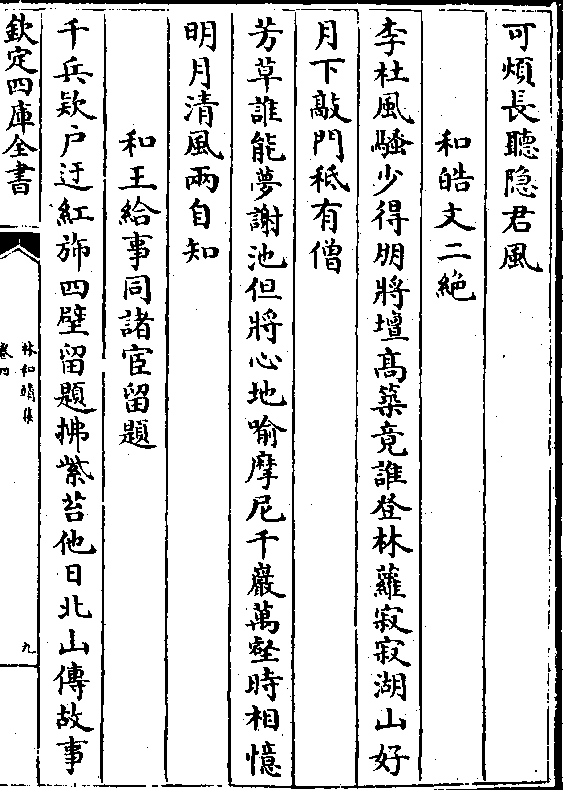 可煩長聽隐君風
和皓文二絶
李杜風騷少得朋將壇髙築竟誰登林蘿寂寂湖山好
月下敲門秪有僧
芳草誰能夢謝池但將心地喻摩尼千巖萬壑時相憶
明月清風兩自知
和王給事同諸官留題
千兵欵户迂紅斾四壁留題拂紫苔他日北山傳故事
欽定四庫全書
林和靖集
卷四
九